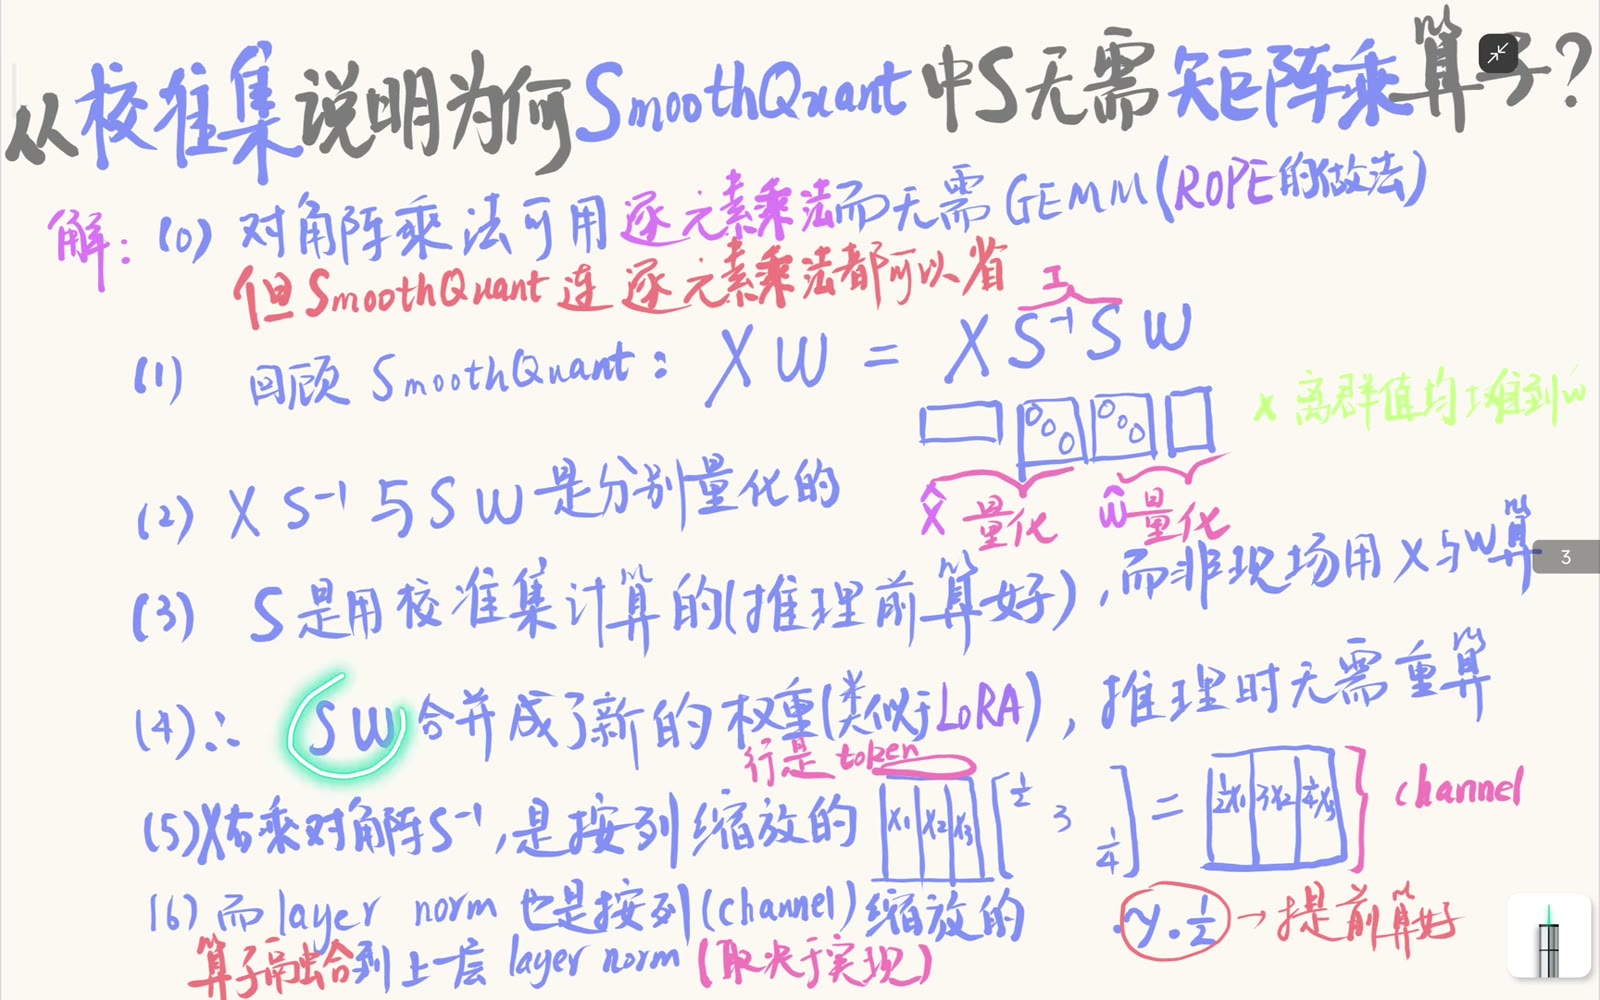 从校准集说明为何SmoothQuant中S无需矩阵乘算子?
解: (0) 对角阵乘法可用逐元素乘法而无需GEMM(ROPE的做法)
但SmoothQuant连逐元素乘法都可以省
I
(1) 回顾 SmoothQuant: XW = X S⁻¹ S W
X 离群值均摊到W
(2) X S⁻¹与SW是分别量化的
X̂ 量化 Ŵ量化
(3) S是用校准集计算的(推理前算好),而非现场用X与W算
3
(4)∴ SW合并成了新的权重(类似于LoRA),推理时无需重算
行是token
(5)X右乘对角阵S⁻¹,是按列缩放的 x₁ x₂ x₃ [½ 3 ¼] = ½x₁ 3x₂ ¼x₃ channel
(6)而layer norm也是按列(channel)缩放的 γ·½→提前算好
算子融合到上一层layer norm(取决于实现)